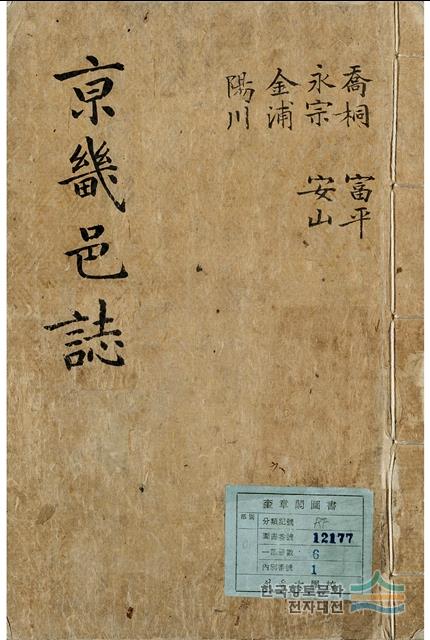 京畿邑誌
喬桐 富平
永宗 安山
金浦
陽川
奎章閣圖書
部 別
分類記號
圖書番號 12177
一部冊數 6
內別番號 1
한국향토문화
전자대전